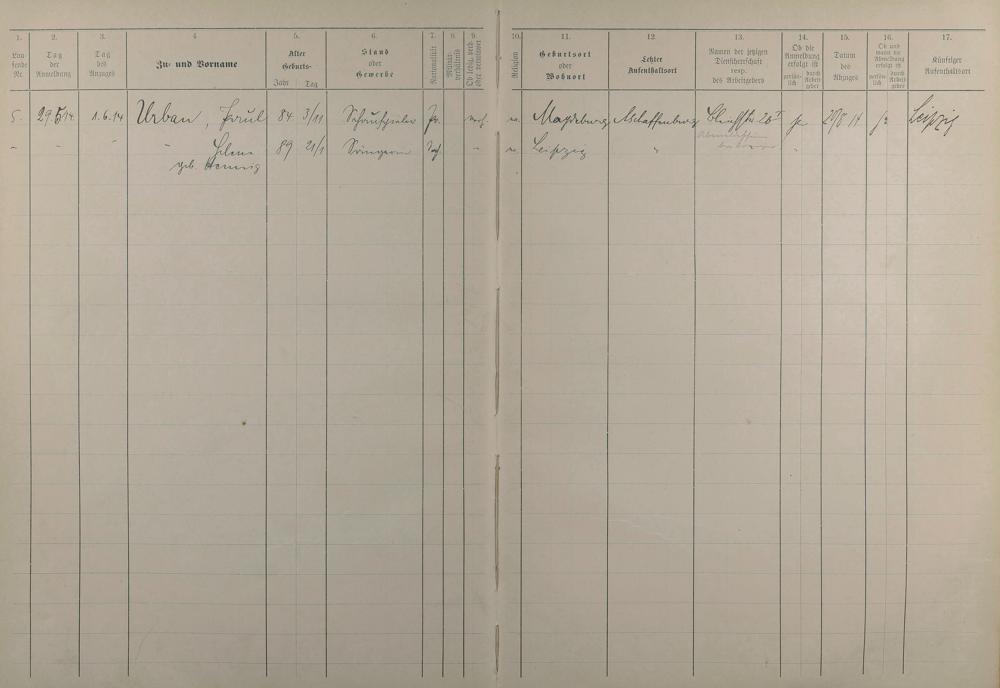 1. 2. 3. 4 5. 6. 7. 8. 9. 10. 11. 12 13. 14. 15. 16. 17.
Lau-
fende
Nr.
Tag
der
Anmeldung
Tag
des
Anzuges
Zu- und Vorname
Alter
Geburts-
Jahr Tag
Stand
oder
Gewerbe
Nationalität
Militär-
verhältnis
Ob ledig, verh.
oder verwitwet
Religion
Geburtsort
oder
Wohnort
Letzter
Aufenthaltsort
Namen der jetzigen
Dienstherrschaft
resp.
des Arbeitgebers
Ob die
Anmeldung
erfolgt ist
persön-
lich
durch
Arbeit-
geber
Datum
des
Abzuges
Ob und
wann die
Abmeldung
erfolgt ist
persön-
lich
durch
Arbeit-
geber
Künftiger
Aufenthaltsort
5. 29.5.14. 1.6.14 Urban, Paul 84 3/11 Schauspieler Pr. verh. Magdeburg Aschaffenburg ja 28/8 14 ja Leipzig
" " " Helene 89 21/1 Sängerin " Leipzig "
geb. Hennig